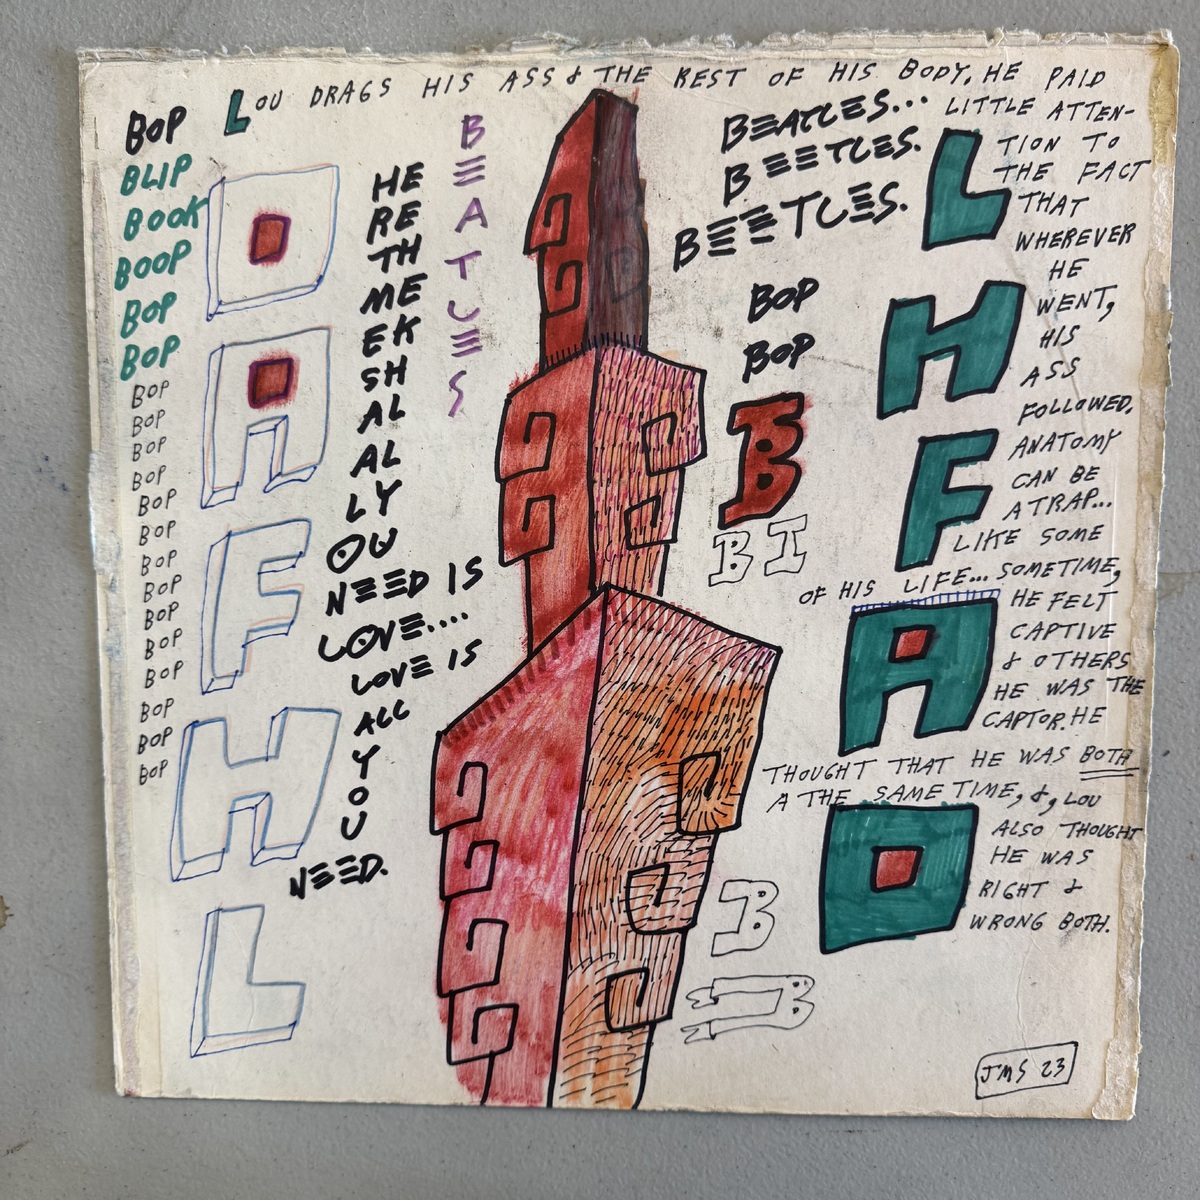 LOU DRAGS HIS ASS & THE REST OF HIS BODY, HE PAID
LITTLE ATTEN-
TION TO
THE FACT
THAT
WHEREVER
HE
WENT,
HIS
ASS
FOLLOWED.
ANATOMY
CAN BE
A TRAP...
LIKE SOME
OF HIS LIFE... SOMETIME,
HE FELT
CAPTIVE
& OTHERS
HE WAS THE
CAPTOR. HE
THOUGHT THAT HE WAS BOTH
A THE SAME TIME, &, LOU
ALSO THOUGHT
HE WAS
RIGHT &
WRONG BOTH.
BOP
BLIP
BOOK
BOOP
BOP
BOP
BOP
BOP
BOP
BOP
BOP
BOP
BOP
BOP
BOP
BOP
BOP
BOP
BOP
BOP
O
A
F
H
L
HE
RE
TH
ME
EK
SH
AL
AL
LY
OU
NEED IS
LOVE....
LOVE IS
ALL
Y
O
U
NEED.
B
E
A
T
L
E
S
BEATLES...
BEETLES.
BEETLES.
BOP
BOP
B
B I
B
B
L
H
F
A
O
JMS 23